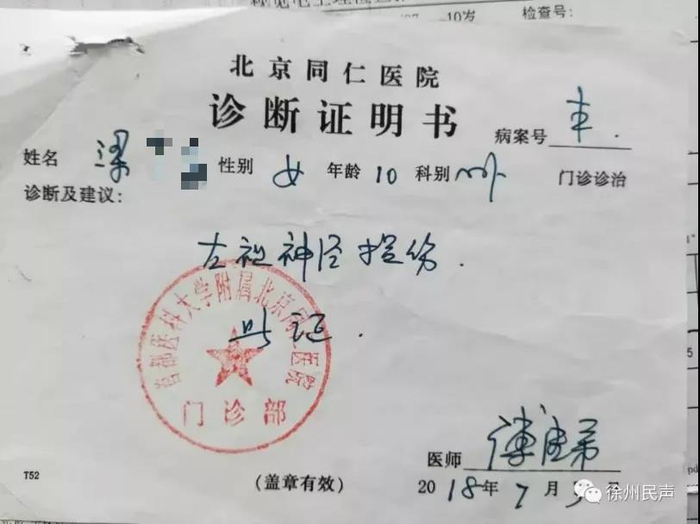 10岁 检查号:
北京同仁医院
诊断证明书
病案号
姓名 梁 性别 女 年龄 10 科别 门诊诊治
诊断及建议:
左视神经损伤.
此证.
首都医科大学附属北京同仁医院
门诊部
医师
T52 (盖章有效) 2018年7月
徐州民声